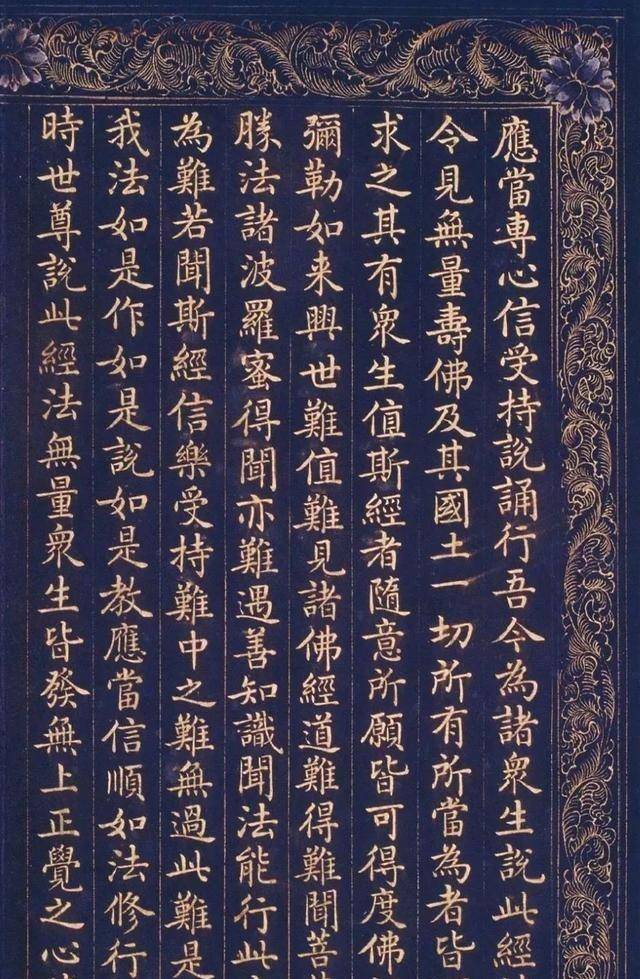 應當專心信受持說誦行吾今為諸衆生說此經
令見無量壽佛及其國土一切所有所當為者皆
求之其有衆生值斯經者隨意所願皆可得度佛
彌勒如来興世難值難見諸佛經道難得難聞菩
勝法諸波羅蜜得聞亦難遇善知識聞法能行此
為難若聞斯經信樂受持難中之難無過此難是
我法如是作如是說如是教應當信順如法修行
時世尊說此經法無量衆生皆發無上正覺之心